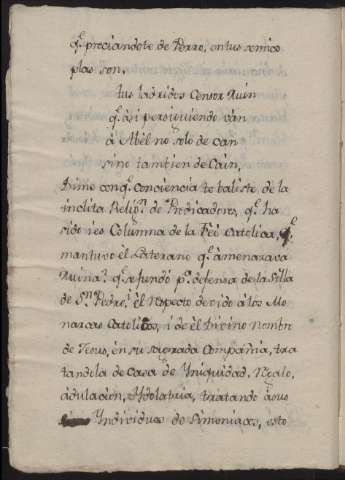 q.e preciandote de Perro, en tus semico
plas son,
tus ladridos Censor Ruin
q.e asi persiguiendo van
à Abèl no solo de can
sino tambien de Cain,
Dime con q.e conciencia te baliste, de la
inclita Relig.n de Predicadores, q.e ha
sido ies Columna de la Feè Catolica, q.e
mantuvo èl Laterano q.e amenazava
Ruina? q.e afundò p.a defensa de la Silla
de S.n Pedro, i èl Respecto devido à los Mo
narcas Catolicos, i de èl Divino Nombre
de Jesus, en su sagrada Compañia, tra
tandola de Casa de Yniquidad, Regalo,
àdulacion, Ydolatria, tratando à sus
Yndividuos de Simoniacos, esto